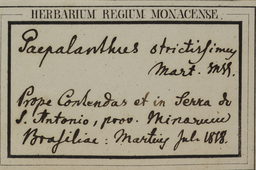 HERBARIUM REGIUM MONACENSE.
Paepalanthus strictissimus
Mart. mss.
Prope Contendas et in Serra de
S. Antonio, prov. Minarum
Brasiliae: Martius Jul. 1818.